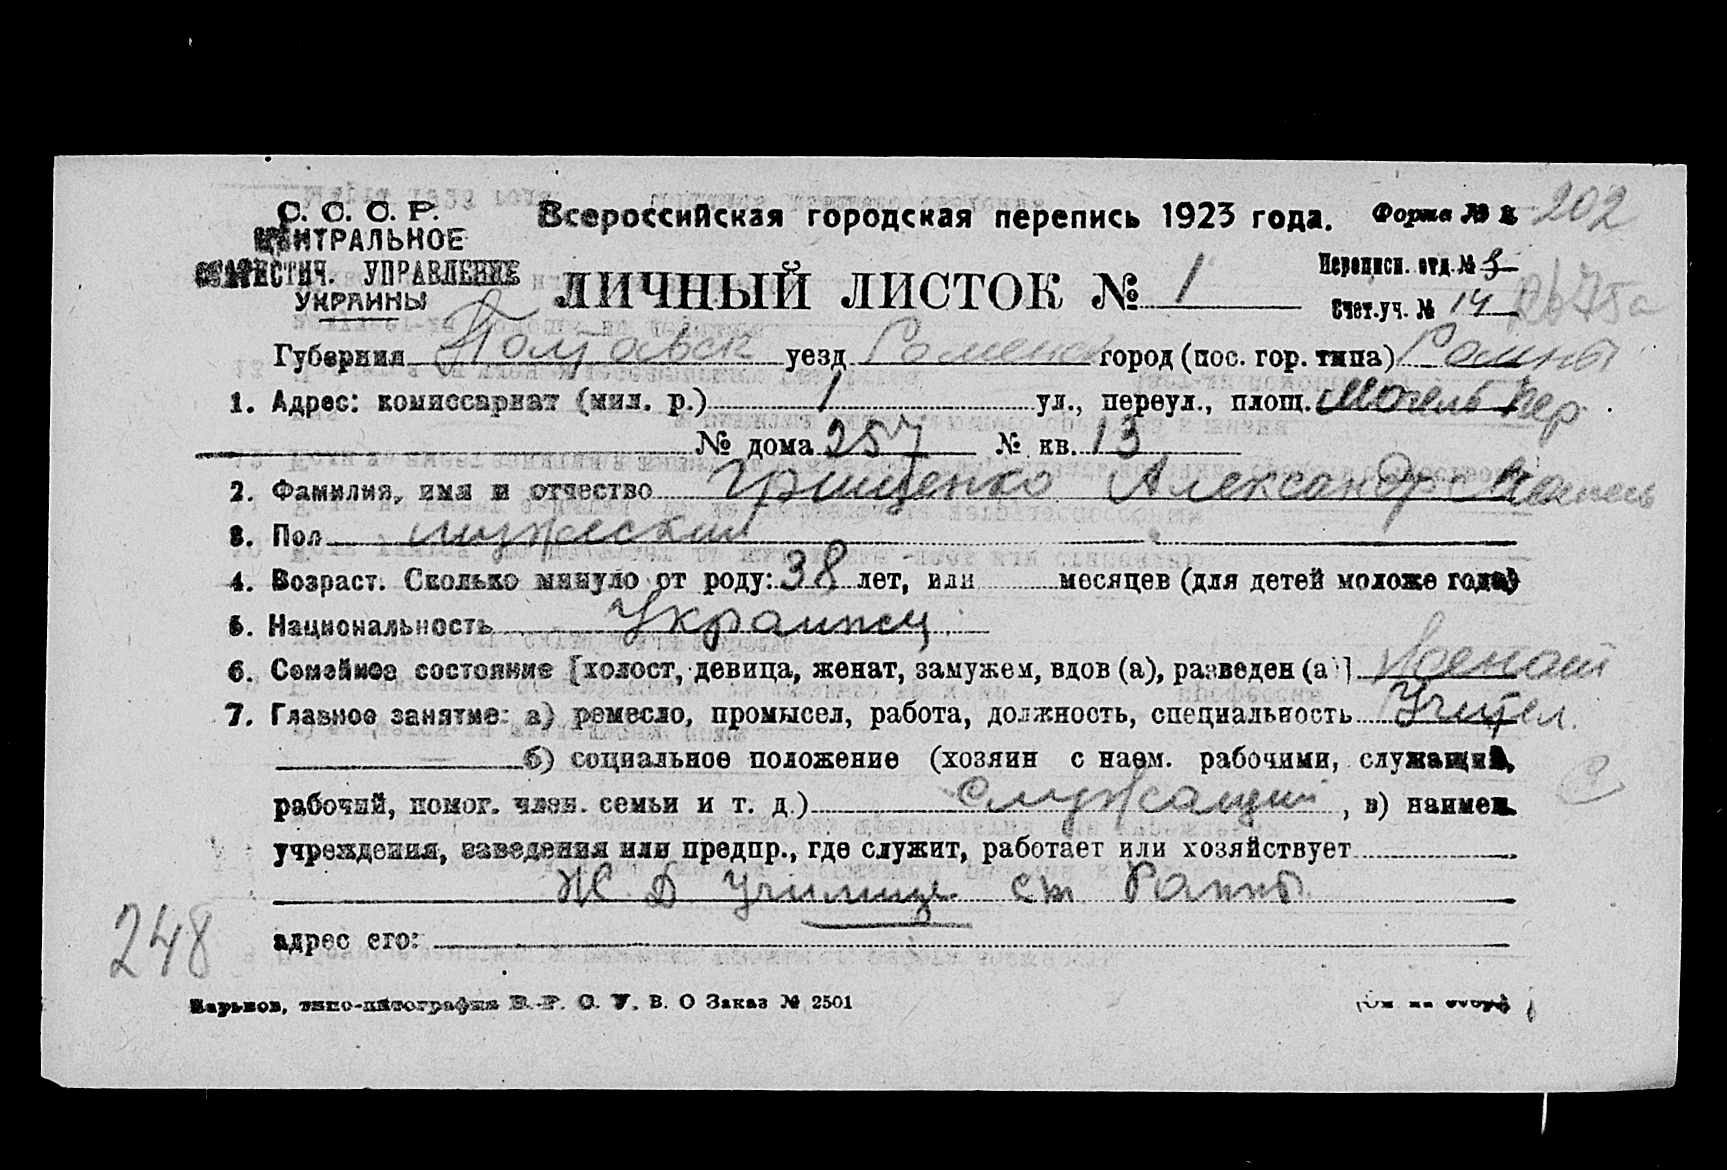 С. С. С. Р.
ЦЕНТРАЛЬНОЕ
СТАТИСТИЧ. УПРАВЛЕНИЕ
УКРАИНЫ
Всероссийская городская перепись 1923 года. Форма № 202
ЛИЧНЫЙ ЛИСТОК № 1
Переписн. отд. № 3
Счет. уч. № 14
Губерния Полтавск уезд Роменск город (пос. гор. типа) Ромны
1. Адрес: комиссариат (мил. р.) 1 ул., переул., площ. пер
№ дома 257 № кв. 13
2. Фамилия, имя и отчество Грищенко Александр
3. Пол мужеский
4. Возраст. Сколько минуло от роду: 38 лет, или месяцев (для детей моложе года)
5. Национальность Украинец
6. Семейное состояние [холост, девица, женат, замужем, вдов (а), разведен (а)] Женат
7. Главное занятие: а) ремесло, промысел, работа, должность, специальность Учител.
б) социальное положение (хозяин с наем. рабочими, служащий,
рабочий, помог. член. семьи и т. д.) Служащий, в) наимен.
учреждения, заведения или предпр., где служит, работает или хозяйствует
Ж Д Училище ст Ромны
адрес его:
248
Харьков, типо-литография В. О Заказ № 2501